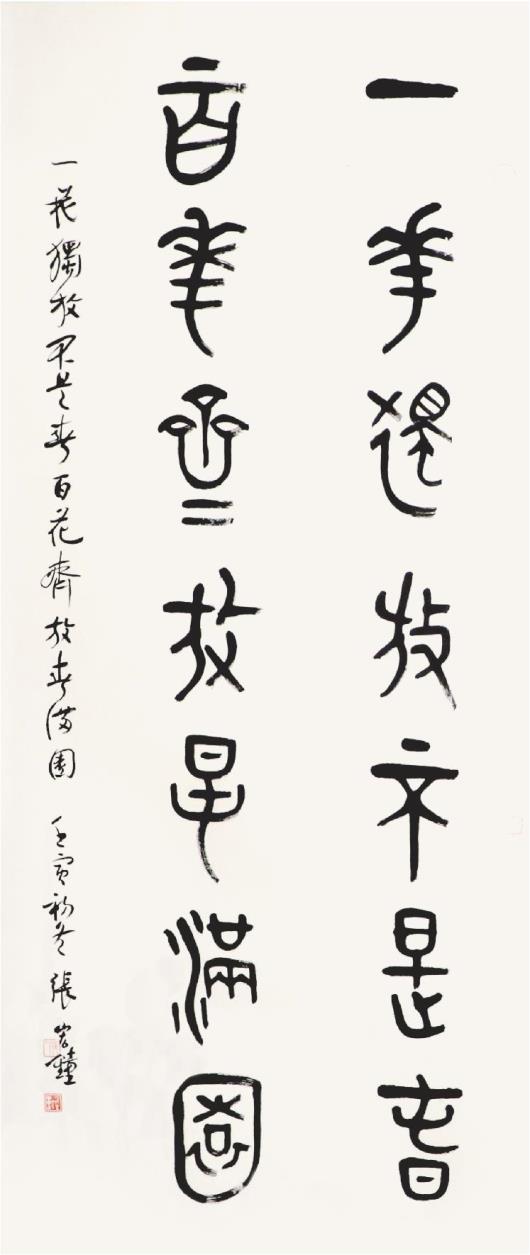 一華獨放不是春
百華齊放春滿園
一花獨放不是春百花齊放春滿園 壬寅初冬 張